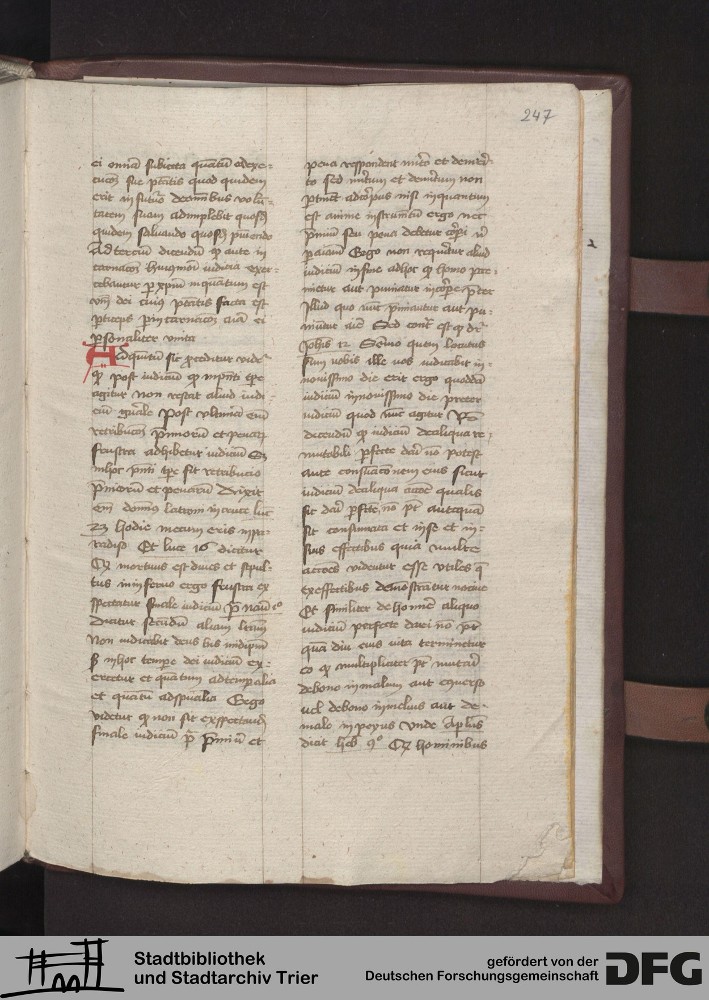 247
ei omnia subiecta quantum ad exe-
cucionem sue potestatis quod quidem
erit in futuro de omnibus volun-
tatem suam adimplebit quosdam
quidem saluando quosdam puniendo
Ad tercium dicendum quod ante in
carnacionem huiusmodi iudicia exer-
cebantur per xpm inquantum est
verbum dei cuius potestatis facta est
particeps per incarnacionem anima ei
personaliter vnita
Ad quintum sic proceditur videtur
quod post iudicium quod in presenti tempore
agitur non restat aliud iudi-
cium generale Post vltimam enim
retribucionem premiorum et penarum
frustra adhibetur iudicium Sed
in hoc presenti tempore fit retribucio
premiorum et penarum Dixit
enim dominus latroni in cruce luc
23 hodie mecum eris in pa-
radiso Et luce 16 dicitur
Quod mortuus est diues et sepul-
tus in inferno ergo frustra ex
spectatur finale iudicium Preterea naum 1o
Dicitur secundum aliam litteram
Non iudicabit deus bis in idipsum
sed in hoc tempore dei iudicium ex-
ercetur et quantum ad temporalia
et quantum ad spiritualia Ergo
videtur quod non sit exspectandum
finale iudicium Preterea premium et
pena respondent merito et demeri-
to sed meritum et demeritum non
pertinent ad corpus nisi inquantum
est anime instrumentum ergo nec
premium seu pena debetur corpori nisi
per animam Ergo non requiritur aliud
iudicium in fine ad hoc quod homo pre-
mietur aut puniatur in corpore preter
Illud quo nunc premiantur aut pu-
niuntur anime Sed contra est quod dicitur
Johis 12 Sermo quem locutus
sum vobis ille vos iudicabit in
nouissimo die erit ergo quoddam
iudicium in nouissimo die preter
iudicium quod nunc agitur Rn
dicendum quod iudicium de aliqua re
mutabili perfecte dari non potest
ante consumacionem eius sicut
iudicium de aliqua accione qualis
sit dari perfecte non potest antequam
sit consumata et in se et in
suis effectibus quia multe
acciones videntur esse vtiles que
ex effectibus demonstrantur nociue
Et similiter de homine aliquo
iudicium perfecte dari non potest
quam diu eius vita terminetur
eo quod multipliciter potest mutari
de bono in malum aut econuerso
vel de bono in melius aut de
malo in peyus vnde Aplus
dicit heb 9o Quod hominibus
Stadtbibliothek
und Stadtarchiv Trier
gefördert von der
Deutschen Forschungsgemeinschaft
DFG